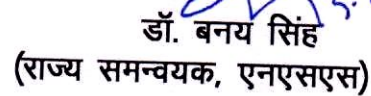 डॉ. बनय सिंह
(राज्य समन्वयक, एनएसएस)